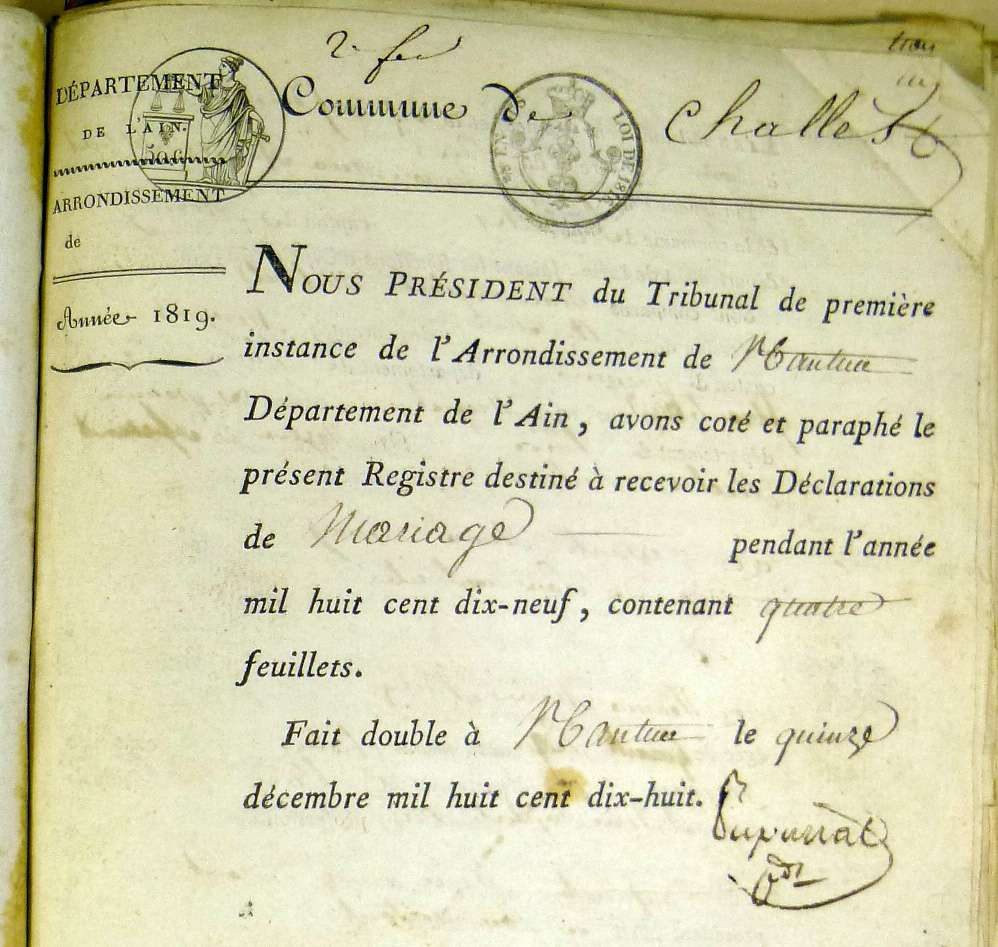 2e feu
DÉPARTEMENT
DE L'AIN.
50 c
ARRONDISSEMENT
de
Année 1819.
Commune de Challes
LOI DE 181
NOUS PRÉSIDENT du Tribunal de première
instance de l'Arrondissement de Nantua
Département de l'Ain, avons coté et paraphé le
présent Registre destiné à recevoir les Déclarations
de Mariage pendant l'année
mil huit cent dix-neuf, contenant quatre
feuillets.
Fait double à Nantua le quinze
décembre mil huit cent dix-huit.